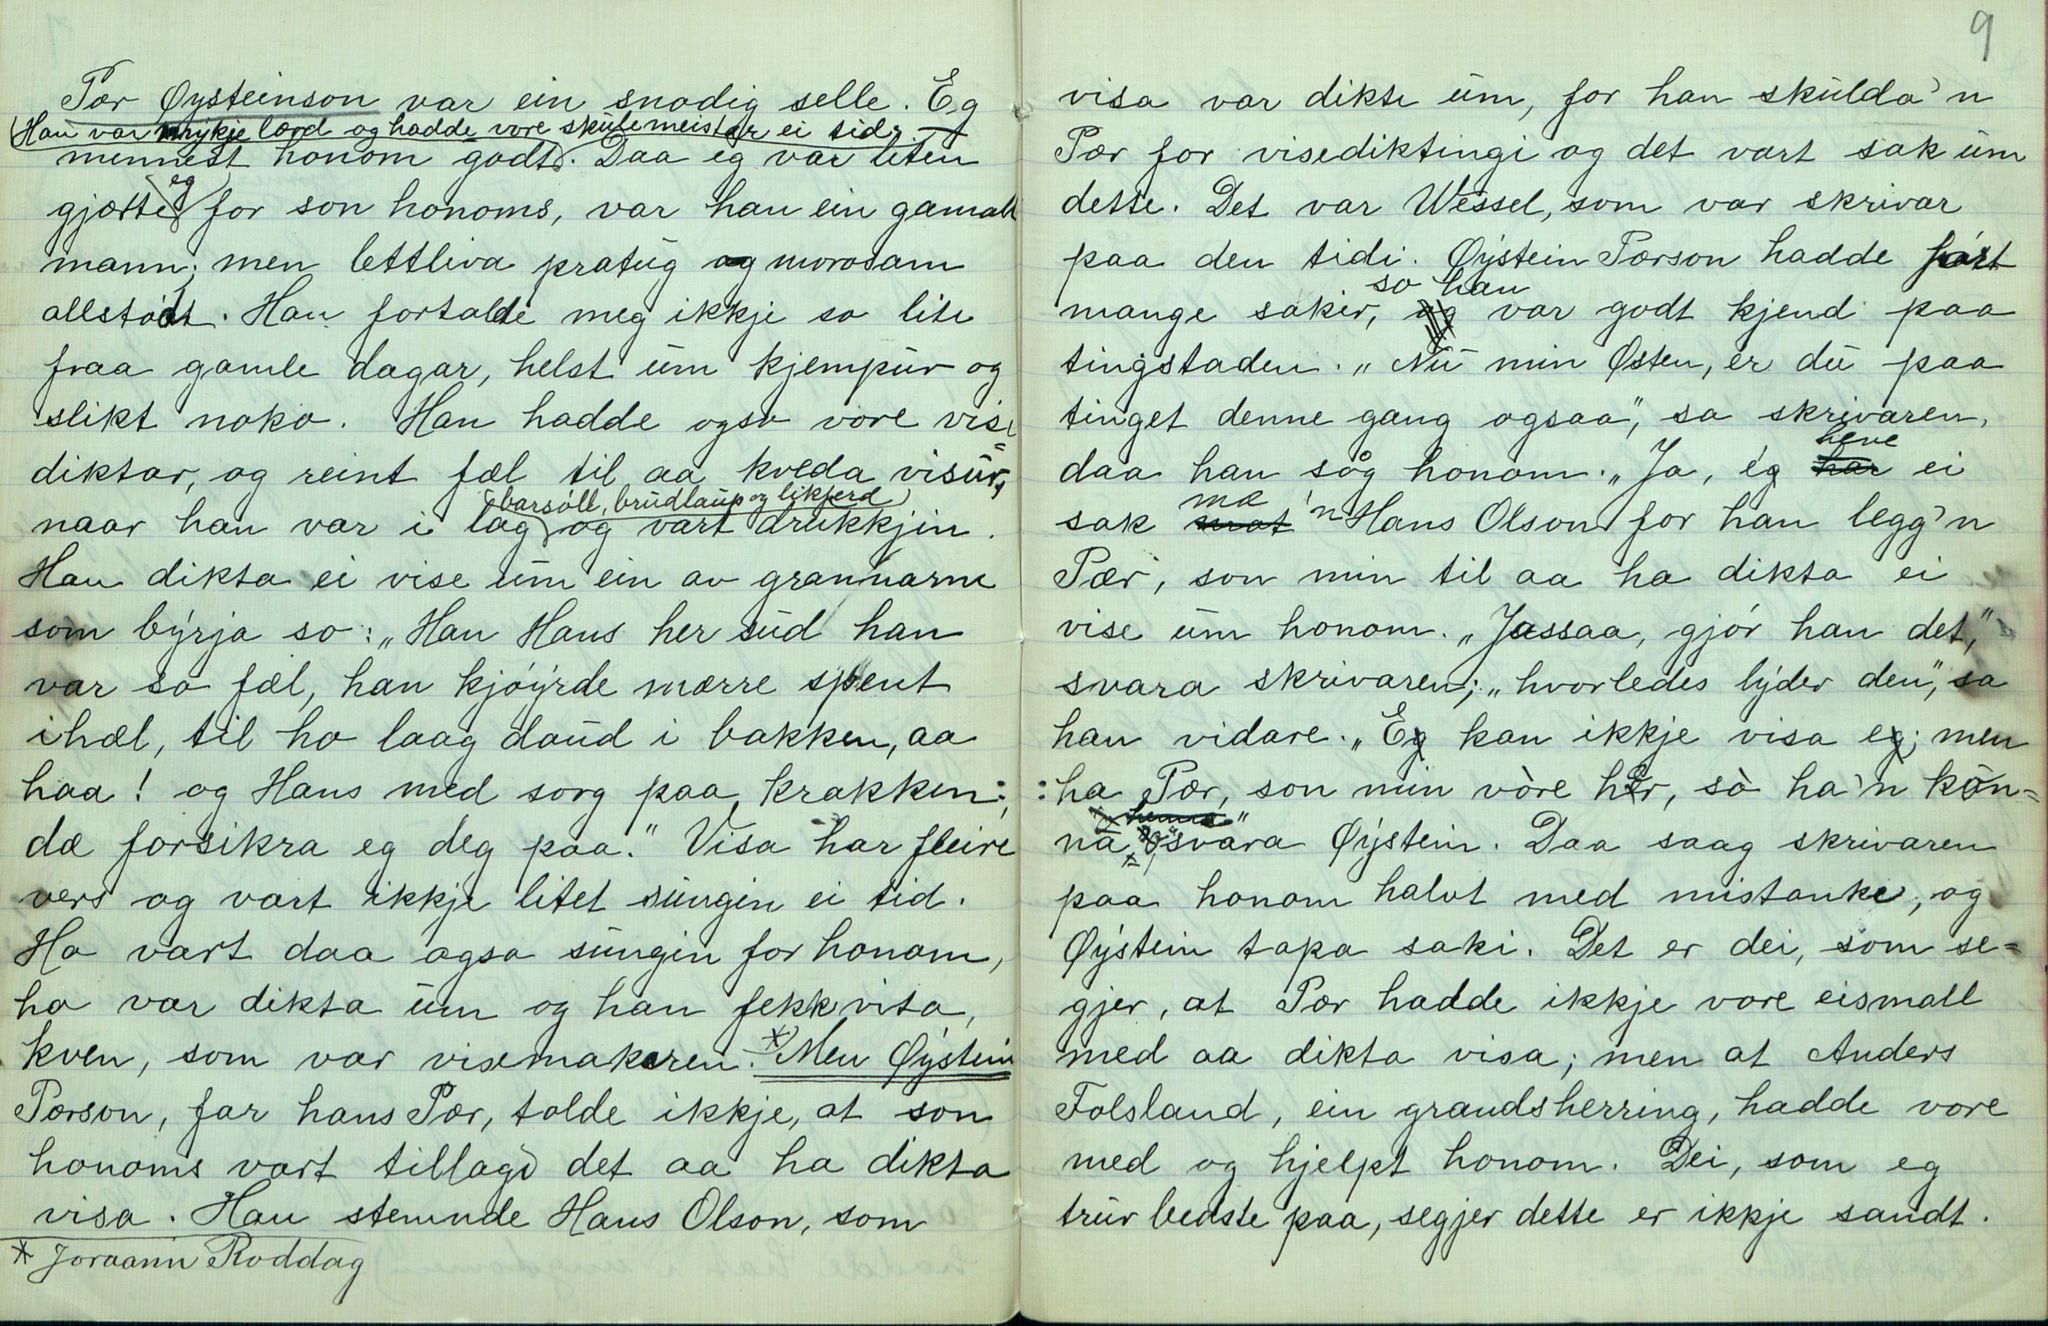 Pær Øysteinson var ein snodig selle. Eg
(Han var mykje lærd og hadde vore skulemeister ei tid)
mennest honom godt. Daa eg var liten
gjætte eg for son honoms, var han ein gamall
mann; men lettliva pratug og morosam
allstødt. Han fortalde meg ikkje so lite
fraa gamle dagar, helst um kjempur og
slikt noko. Han hadde ogso vore vise=
diktar, og reint fæl til aa kveda visur,
(barsøll, brudlaup og likferd)
naar han var i lag og vart drukkjin.
Han dikta ei vise um ein av grannarne
som byrja so: „Han Hans her sud han
var so fæl, han kjøyrde mærre spent
ihæl, til ho laag daud i bakken, aa
haa! og Hans med sorg paa krakken;
dæ forsikra eg deg paa." Visa har fleire
vers og vart ikkje litet sungin ei tid.
Ho vart daa ogso sungin for honom,
ho var dikta um og han fekk vita,
kven, som var visemakaren.* Men Øystein
Pærson, far hans Pær, tolde ikkje, at son
honoms vart tillagd det aa ha dikta
visa. Han stemnde Hans Olson, som
* Joraann Roddag
9
visa var dikte um, for han skulda'n
Pær for visediktingi og det vart sak um
dette. Det var Wessel, som var skrivar
paa den tidi. Øystein Pærson hadde ført
mange saker, so han var godt kjend paa
tingstaden. „Nu min Østen, er du paa
tinget denne gang ogsaa", sa skrivaren,
daa han søg honom. „Ja, eg heve ei
sak mæ 'n Hans Olson for han legg'n
Pær, son min til aa ha dikta ei
vise um honom. „Jassaa, gjør han det,"
svara skrivaren; „hvorledes lyder den", sa
han vidare. „Eg kan ikkje visa eg; men
ha Pær, son min vòre her, sò ha'n kòn=
na" svara Øystein. Daa saag skrivaren
paa honom halvt med mistanke, og
Øystein tapa saki. Det er dei, som se=
gjer, at Pær hadde ikkje vore eismall
med aa dikta visa; men at Anders
Folsland, ein grandsherring, hadde vore
med og hjelpt honom. Dei, som eg
trur bedste paa, segjer dette er ikkje sandt.